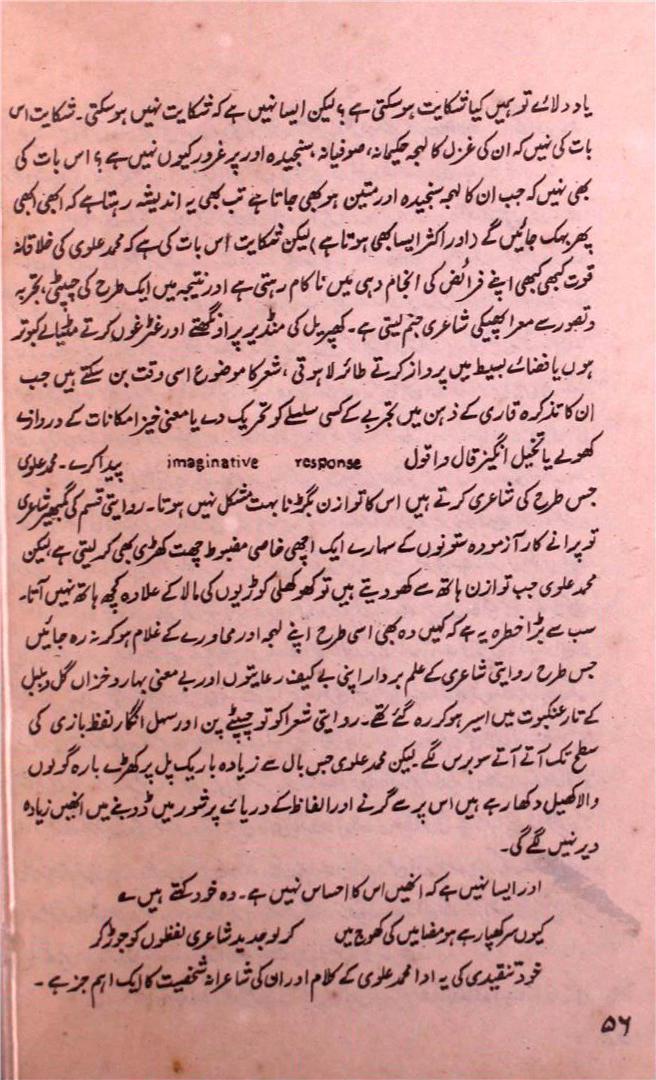 یاد دلائے تو ہمیں کیا شکایت ہوسکتی ہے؟ لیکن ایسا نہیں ہے کہ شکایت نہیں ہوسکتی۔ شکایت اس
بات کی نہیں کہ ان کی غزل کا لہجہ حکیمانہ، صوفیانہ، سنجیدہ اور پر غرور کیوں نہیں ہے؟ اس بات کی
بھی نہیں کہ جب ان کا لہجہ سنجیدہ اور متین ہو بھی جاتا ہے تب بھی یہ اندیشہ رہتا ہے کہ ابھی ابھی
پھر بہک جائیں گے (اور اکثر ایسا بھی ہوتا ہے) لیکن شکایت اس بات کی ہے کہ محمد علوی کی خلاقانہ
قوت کبھی کبھی اپنے فرائض کی انجام دہی میں ناکام رہتی ہے اور نتیجہ میں ایک طرح کی چپٹی، تجربہ
و تصور سے معرا پھیکی شاعری جنم لیتی ہے۔ کھپریل کی منڈیر پر اونگھتے اور غٹرغوں کرتے مٹیالے کبوتر
ہوں یا فضائے بسیط میں پرواز کرتے طائر لاہوتی، شعر کا موضوع اسی وقت بن سکتے ہیں جب
ان کا تذکرہ قاری کے ذہن میں تجربے کے کسی سلسلے کو تحریک دے یا معنی خیز امکانات کے دروازے
کھولے یا تخیل انگیز قال و اقول imaginative response پیدا کرے۔ محمد علوی
جس طرح کی شاعری کرتے ہیں اس کا توازن بگڑنا بہت مشکل نہیں ہوتا۔ روایتی قسم کی گمبھیر شاعری
تو پرانے کار آزمودہ ستونوں کے سہارے ایک اچھی خاصی مضبوط چھت کھڑی بھی کر لیتی ہے لیکن
محمد علوی جب توازن ہاتھ سے کھو دیتے ہیں تو کھوکھلی کوڑیوں کی مالا کے علاوہ کچھ ہاتھ نہیں آتا۔
سب سے بڑا خطرہ یہ ہے کہ کہیں وہ بھی اسی طرح اپنے لہجہ اور محاورے کے غلام ہو کر نہ رہ جائیں
جس طرح روایتی شاعری کے علم بردار اپنی بے کیف رعایتوں اور بے معنی بہار و خزاں گل و بلبل
کے تار عنکبوت میں اسیر ہو کر رہ گئے تھے۔ روایتی شعرا کو تو چپٹے پن اور سہل انگار لفظ بازی کی
سطح تک آتے آتے سو برس لگے لیکن محمد علوی جس بال سے زیادہ باریک پل پر کھڑے بارہ گولوں
والا کھیل دکھا رہے ہیں اس پر سے گرنے اور الفاظ کے دریائے پر شور میں ڈوبنے میں انھیں زیادہ
دیر نہیں لگے گی۔
اور ایسا نہیں ہے کہ انھیں اس کا احساس نہیں ہے۔ وہ خود کہتے ہیں ؎
کیوں سر کھپا رہے ہو مضامیں کی کھوج میں کر لو جدید شاعری لفظوں کو جوڑ کر
خود تنقیدی کی یہ ادا محمد علوی کے کلام اور ان کی شاعرانہ شخصیت کا ایک اہم جز ہے۔
۵۶